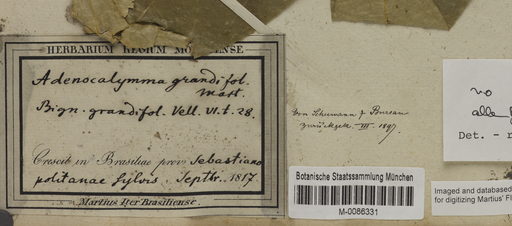 HERBARIUM REGIUM MONACENSE
Adenocalymma grandifol.
Mart.
Bign. grandifol. Vell. VI. t. 28.
Crescit in Brasiliae prov. Sebastiano
politanae sylvis. Septbr. 1817.
Martius Iter Brasiliense.
Von Schumann f. Bureau
zurückgek. III. 1897.
Botanische Staatssammlung München
M-0086331
no
Det. -
Imaged and databased
for digitizing Martius' Fl